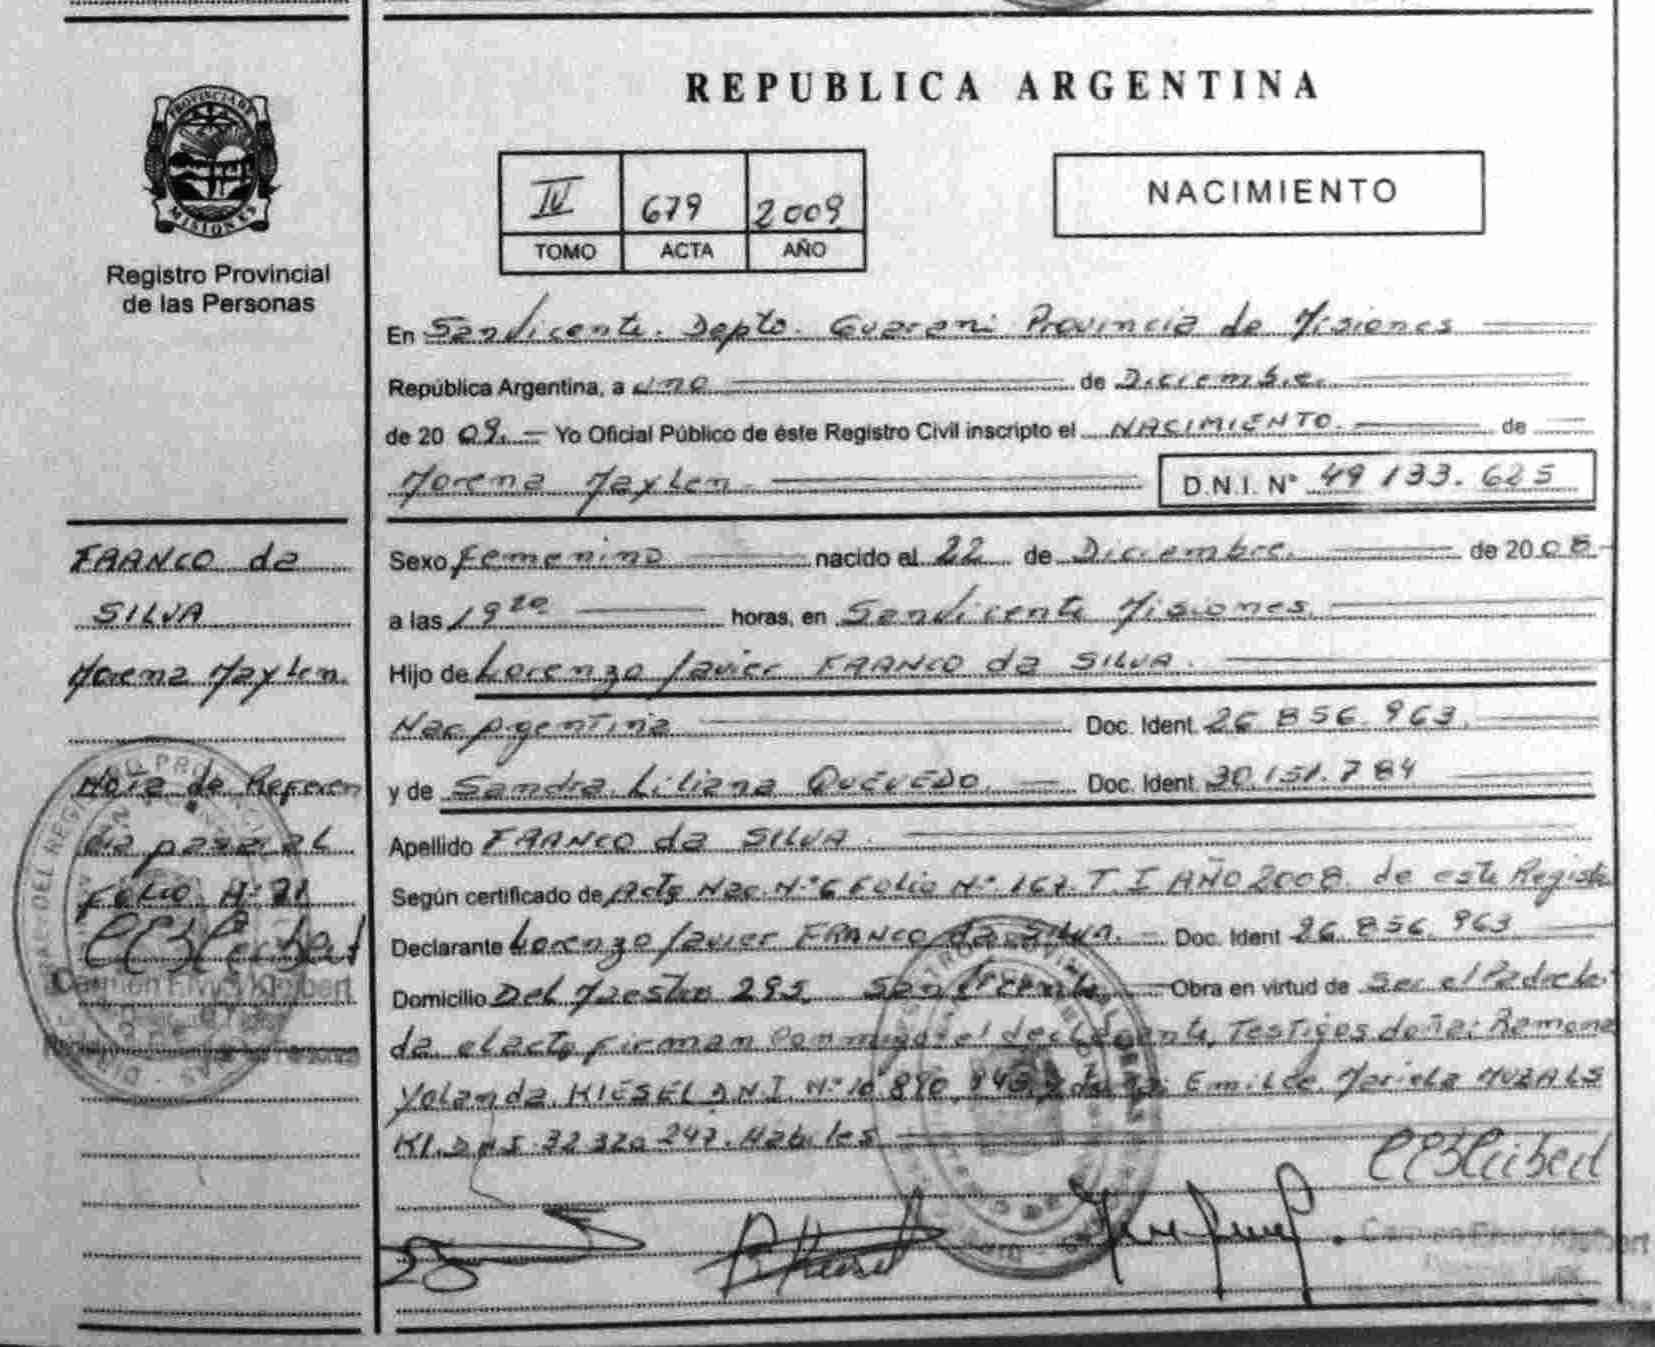 PROVINCIA DE
MISIONES
Registro Provincial
de las Personas
REPUBLICA ARGENTINA
IV 679 2009
TOMO ACTA AÑO
NACIMIENTO
En San Vicente. Depto. Guarani Provincia de Misiones
República Argentina, a uno de Diciembre
de 20 09. Yo Oficial Público de éste Registro Civil inscripto el NACIMIENTO. de
Morena Maylen D.N.I. Nº 49 133.625
FRANCO da
SILVA
Morena Maylen.
Sexo femenino nacido el 22 de Diciembre. de 20 08
a las 19 20 horas, en San Vicente Misiones.
Hijo de Lorenzo Javier FRANCO da SILVA.
Nac Argentina Doc. Ident. 26 856.963.
y de Sandra Liliana QUEVEDO. Doc. Ident. 30.151.784
Apellido FRANCO da SILVA.
Según certificado de Acta Nac. Nº 6 Folio Nº 167. T. I AÑO 2008. de este Registro
Declarante Lorenzo Javier FRANCO da Silva. Doc. Ident 26 856.963
Domicilio Del Maestro 295. San Vicente Obra en virtud de Ser el Padre Lei
da el acto firman conmigo el declarante, Testigos doña: Ramona
Yolanda KIESEL D.N.I. Nº 10.890 Emilce Mariela
32 320 247. Habiles
Nota de Referen
cia pasa al
Folio Nº 21